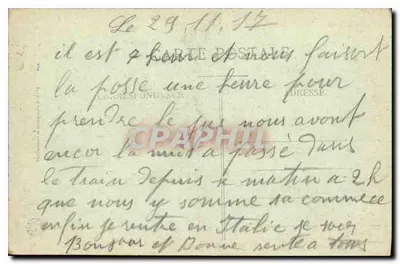 Le 29 11 17
il est 7 heur et nous faisont
CARTE POSTALE
la posse une heure pour
CORRESPONDANCE ADRESSE
prendre le jus nous avont
encor la nuit a passé dans
CPAPHIL
le train depuis matin a 2h
que nous y somme sa commece
enfin je rentre en Italie je vous
Bonjour et Bonne sente a tous